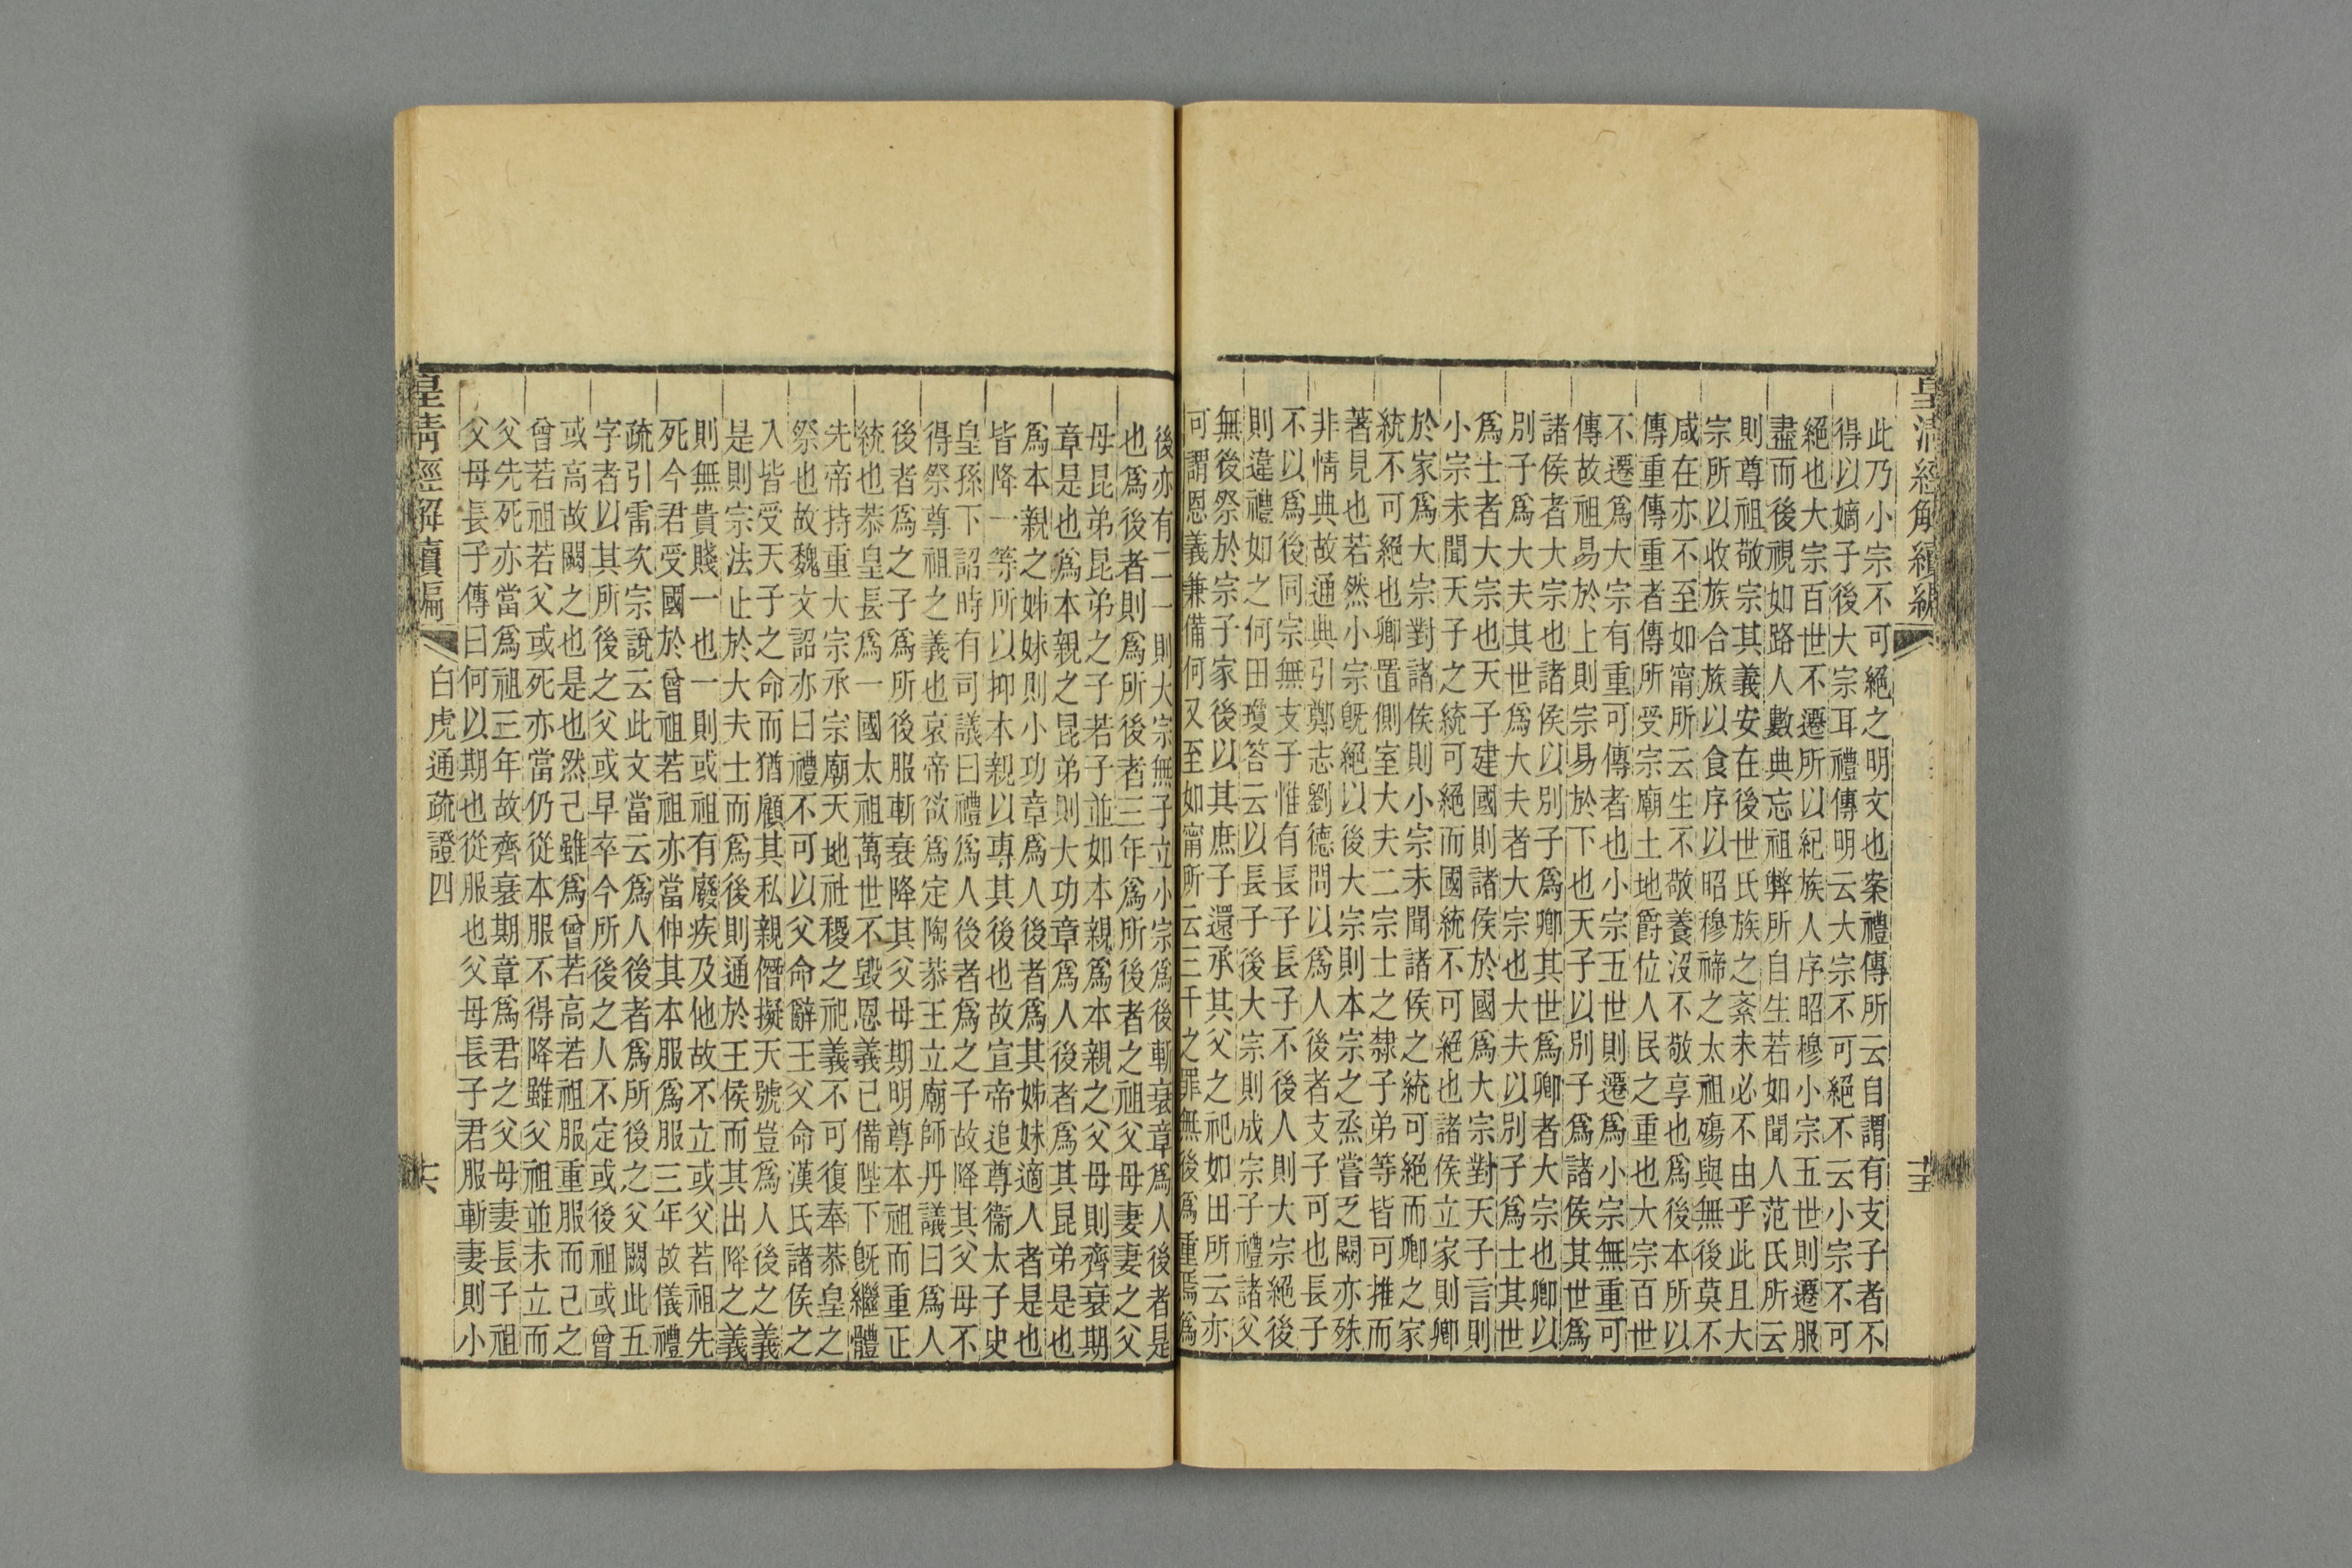 皇清經解續編
十五
此乃小宗不可絕之明文也案禮傳所云自謂有支子者不
得以嫡子後大宗耳禮傳明云大宗不可絕不云小宗不可
絕也大宗百世不遷所以紀族人序昭穆小宗五世則遷服
盡而後視如路人數典忘祖弊所自生若如聞人范氏所云
則尊祖敬宗其義安在後世氏族之紊未必不由乎此且大
宗所以收族合族以食序以昭穆禘之太祖殤與無後莫不
咸在亦不至如甯所云生不敬養沒不敬享也爲後本所以
傳重傳重者傳所受宗廟土地爵位人民之重也大宗百世
不遷爲大宗有重可傳者也小宗五世則遷爲小宗無重可
傳故祖易於上則宗易於下也天子以別子爲諸侯其世爲
諸侯者大宗也諸侯以別子爲卿其世爲卿者大宗也卿以
別子爲大夫其世爲大夫者大宗也大夫以別子爲士其世
爲士者大宗也天子建國則諸侯於國爲大宗對天子言則
小宗未聞天子之統可絕而國統不可絕也諸侯立家則卿
於家爲大宗對諸侯則小宗未聞諸侯之統可絕而卿之家
統不可絕也卿置側室大夫二宗士之隸子弟等皆可推而
著見也若然小宗旣絕以後大宗則本宗之烝嘗乏闕亦殊
非情典故通典引鄭志劉德問以爲人後者支子可也長子
不以爲後同宗無支子惟有長子長子不後人則大宗絕後
則違禮如之何田瓊答云以長子後大宗則成宗子禮諸父
無後祭於宗子家後以其庶子還承其父之祀如田所云亦
可謂恩義兼備何又至如甯所云三千之罪無後爲重焉爲
後亦有二一則大宗無子立小宗爲後斬衰章爲人後者是
也爲後者則爲所後者三年爲所後者之祖父母妻妻之父
母昆弟昆弟之子若子並如本親爲本親之父母則齊衰期
章是也爲本親之昆弟則大功章爲人後者爲其昆弟是也
爲本親之姊妹則小功章爲人後者爲其姊妹適人者是也
皆降一等所以抑本親以專其後也故宣帝追尊衞太子史
皇孫下詔時有司議曰禮爲人後者爲之子故降其父母不
得祭尊祖之義也哀帝欲爲定陶恭王立廟師丹議曰爲人
後者爲之子爲所後服斬衰降其父母期明尊本祖而重正
統也恭皇長爲一國太祖萬世不毀恩義已備陛下旣繼體
先帝持重大宗承宗廟天地社稷之祀義不可復奉恭皇之
祭也故魏文詔亦曰禮不可以父命辭王父命漢氏諸侯之
入皆受天子之命而猶顧其私親僭擬天號豈爲人後之義
是則宗法止於大夫士而爲後則通於王侯而其出降之義
則無貴賤一也一則或祖有廢疾及他故不立或父若祖先
死今君受國於曾祖若祖亦當仲其本服爲服三年故儀禮
疏引雷次宗說云此文當云爲人後者爲所後之父闕此五
字者以其所後之父或早卒今所後之人不定或後祖或曾
或高故闕之也是也然己雖爲曾若高若祖服重服而己之
曾若祖若父或死亦當仍從本服不得降雖父祖並未立而
父先死亦當爲祖三年故齊衰期章爲君之父母妻長子祖
父母長子傳曰何以期也從服也父母長子君服斬妻則小
皇清經解續編
白虎通疏證四
十六